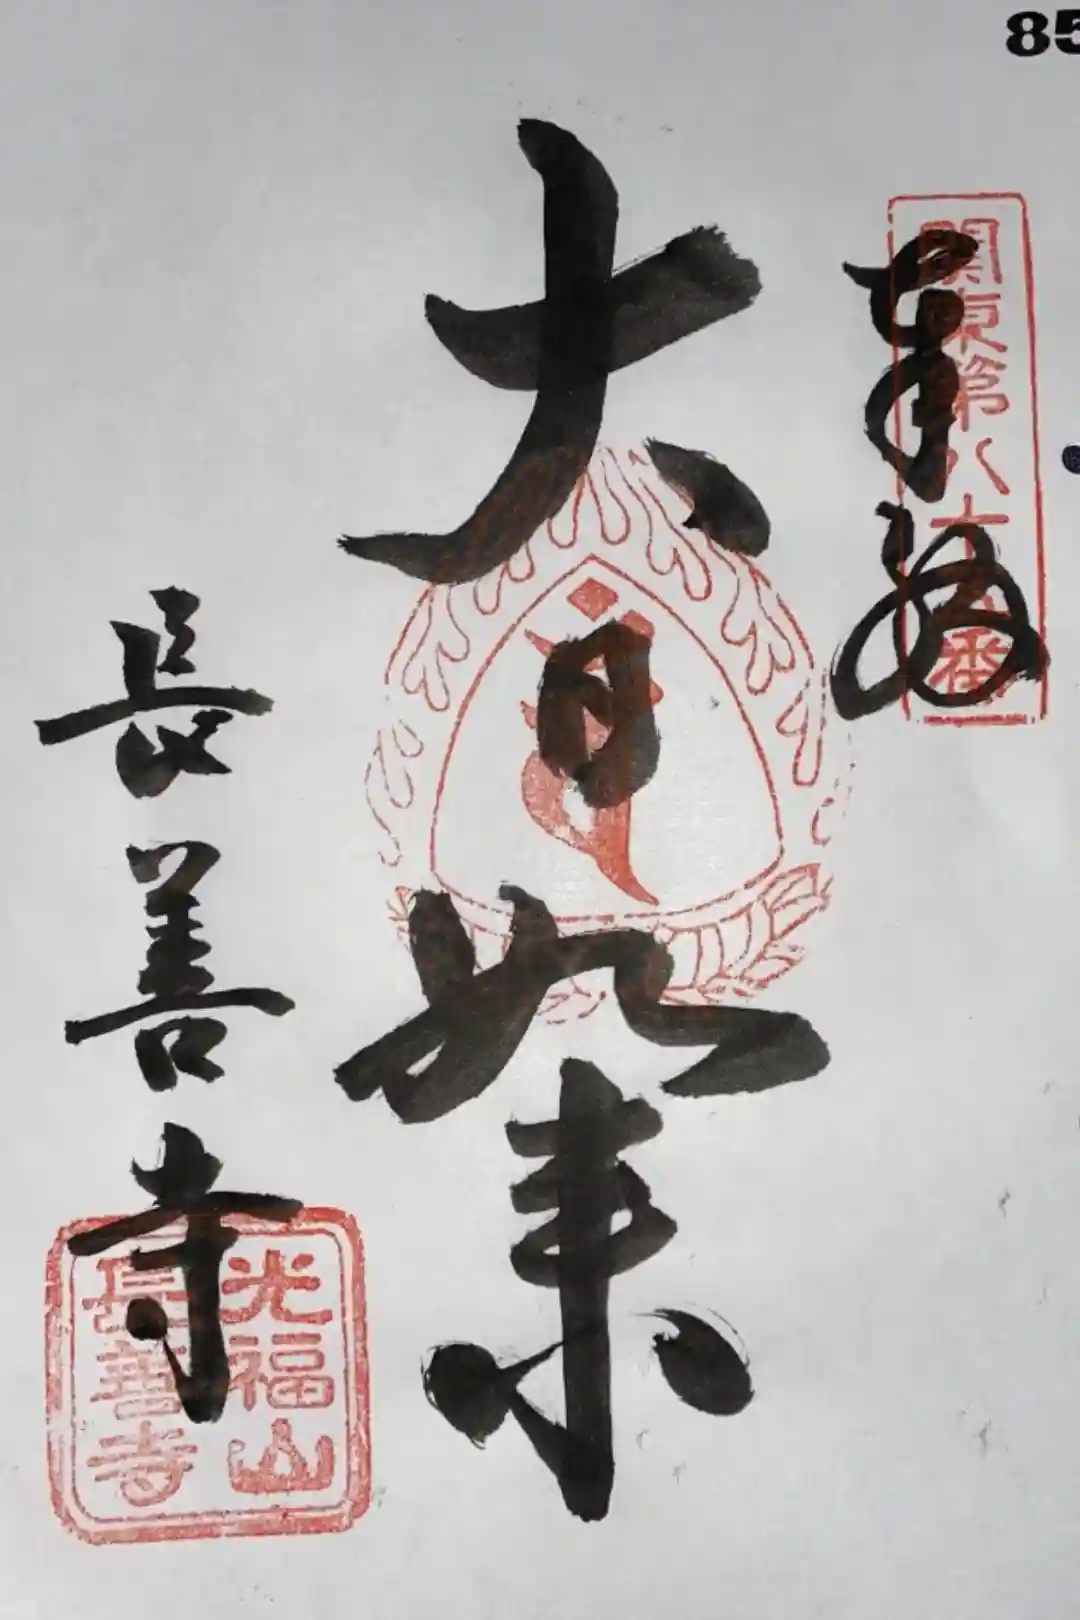 85
関東第八十五番
奉納
大日如来
長善寺
光福山
長善寺